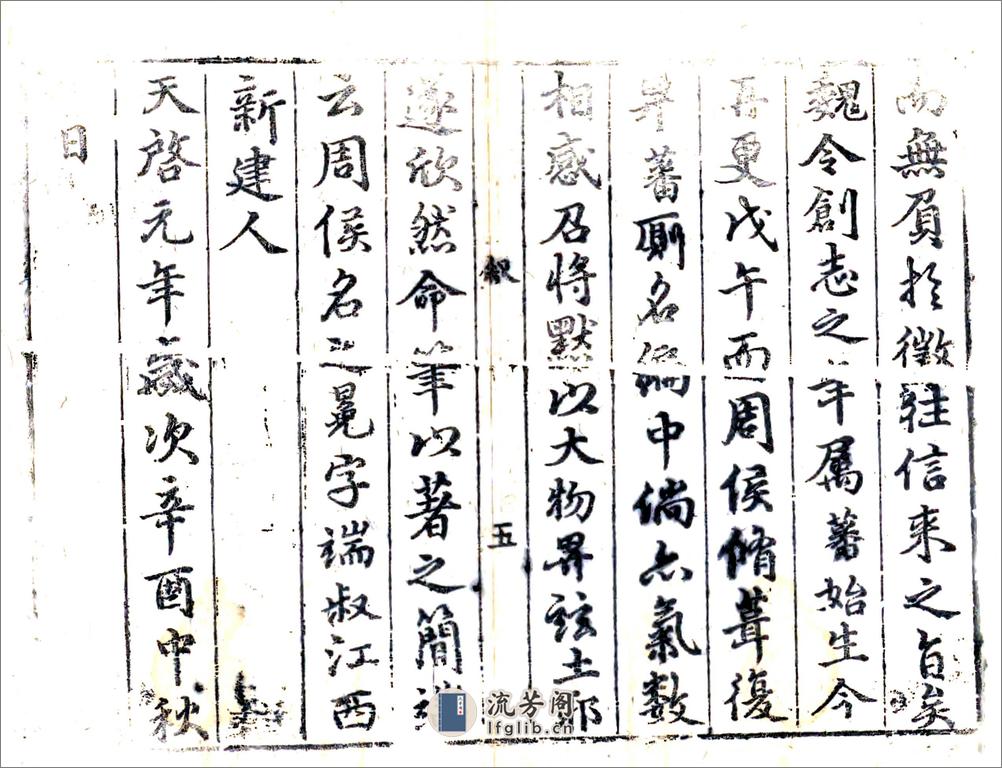 而無負於徵往信来之旨矣
魏令創志之年属蕃始生今
再更戊午而周侯脩葺復
畀蕃厠名编中倘亦氣數
相感召将默以大物畀兹土耶
遂欣然命筆以著之簡端
云周侯名之晃字端叔江西
新建人
天啓元年歲次辛酉中秋
日
叙
五
流芳阁
lfglib.cn